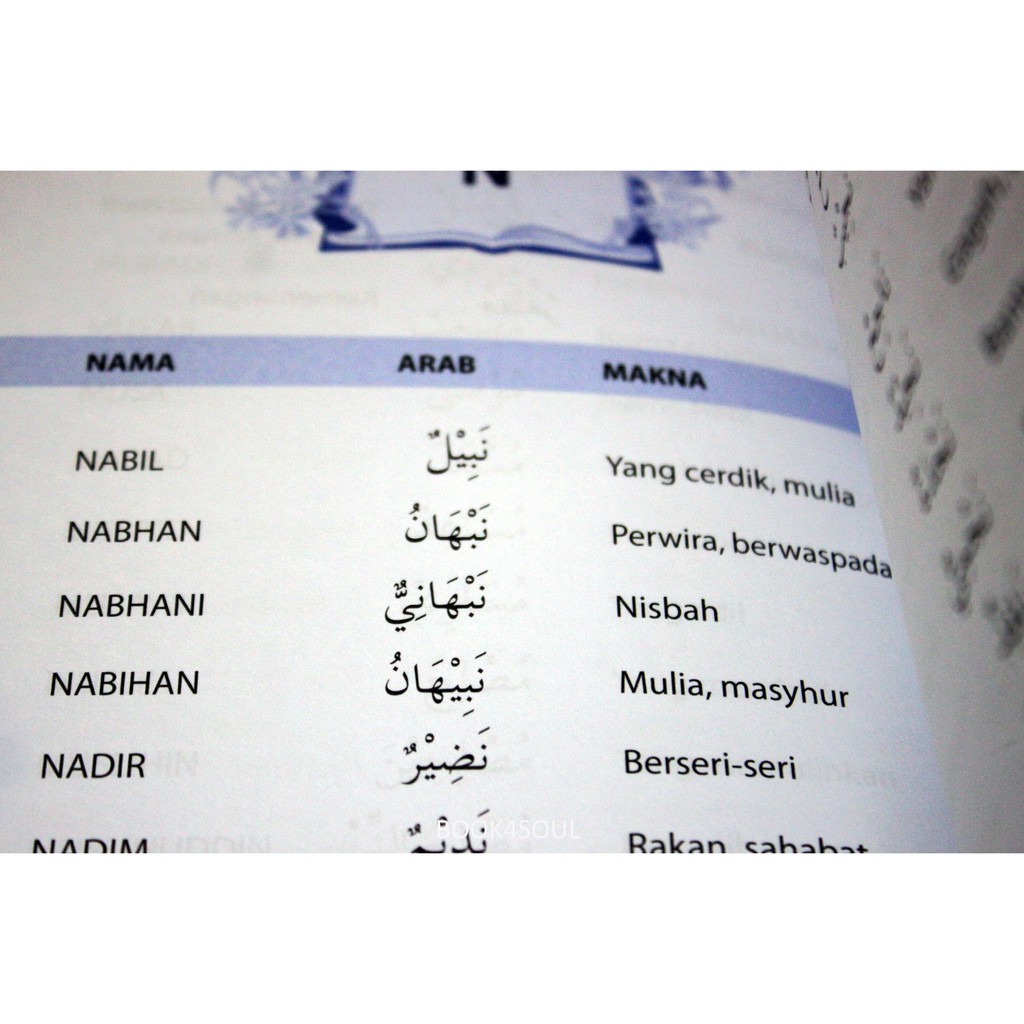 N
NAMA ARAB MAKNA
NABIL نَبِيْلٌ Yang cerdik, mulia
NABHAN نَبْهَانُ Perwira, berwaspada
NABHANI نَبْهَانِيٌّ Nisbah
NABIHAN نَبِيْهَانُ Mulia, masyhur
NADIR نَضِيْرٌ Berseri-seri
NADIM نَدِيْمٌ Rakan, sahabat
BOOK4SOUL